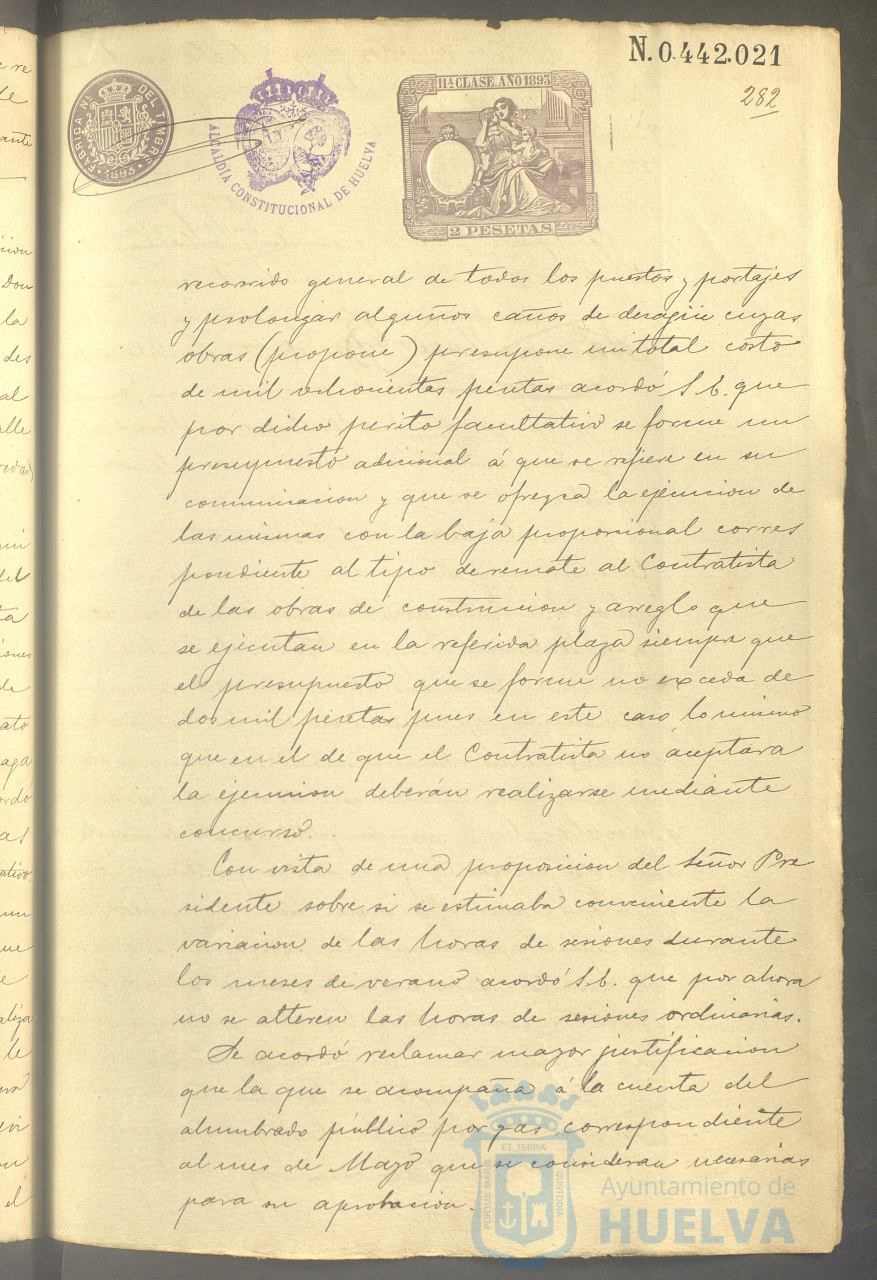 N.0.442.021
282
FABRICA NL. DEL TIMBRE
1893
ALCALDIA CONSTITUCIONAL DE HUELVA
11ª CLASE. AÑO 1893
2 PESETAS
recorrido general de todos los puestos y portajes
y prolongar alguños caños de desagüe cuyas
obras (propone) presupone un total costo
de mil ochocientas pesetas acordó S.E. que
por dicho perito facultativo se forme un
presupuesto adicional á que se refiere en su
comunicacion y que se ofrezca la ejecucion de
las mismas con la baja proporcional corres
pondiente al tipo de remate al Contratista
de las obras de construccion y arreglo que
se ejecutan en la referida plaza siempre que
el presupuesto que se forme no exceda de
dos mil pesetas pues en este caso lo mismo
que en el de que el Contratista no aceptara
la ejecucion deberán realizarse mediante
concurso.
Con vista de una proposicion del Señor Pre
sidente sobre si se estimaba conveniente la
variacion de las horas de sesiones durante
los meses de verano acordó S.E. que por ahora
no se alteren las horas de sesiones ordinarias.
Se acordó reclamar mayor justificacion
que la que se acompaña á la cuenta del
alumbrado publico por gas correspondiente
al mes de Mayo que se consideran necesarias
para su aprobacion.
PORTUS MARIS ET TERRAE CUSTODIA
Ayuntamiento de
HUELVA